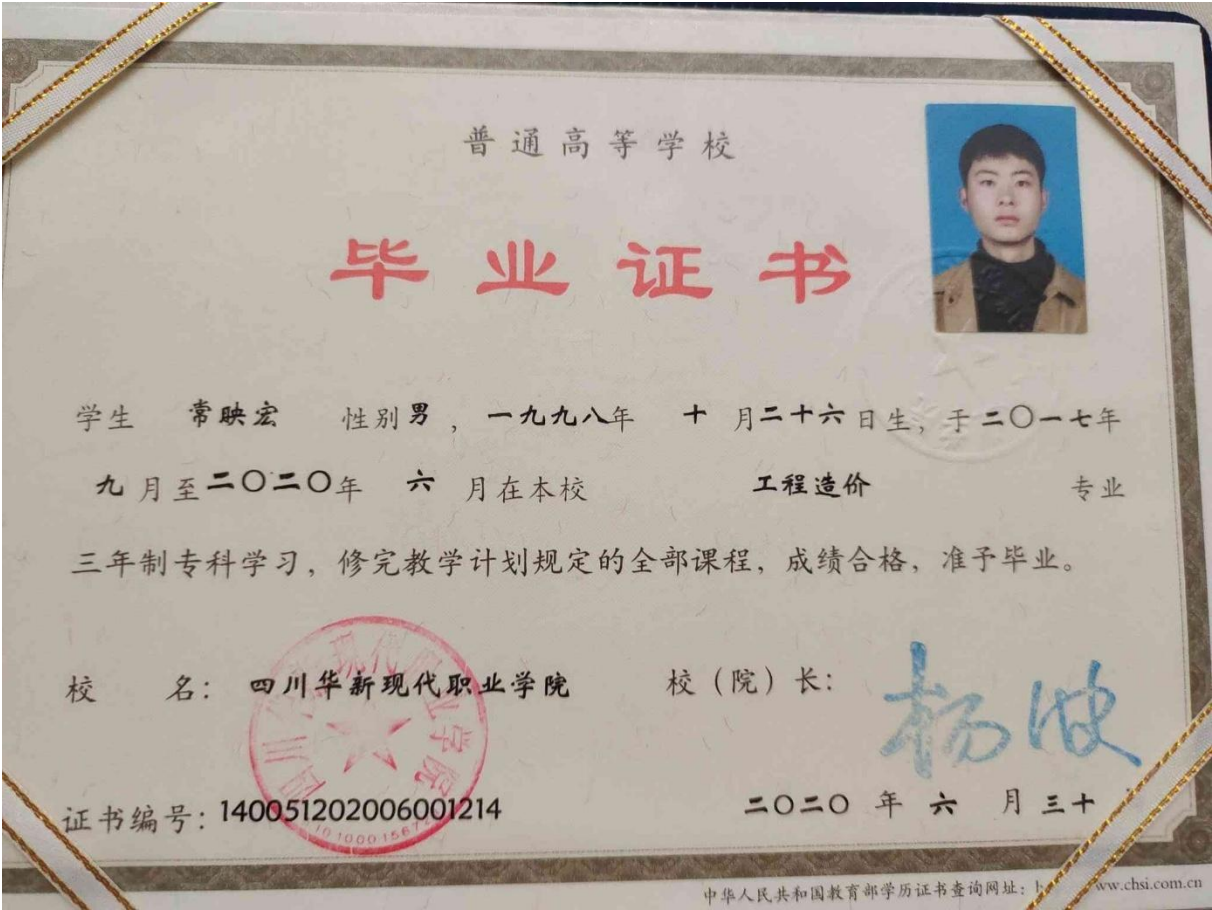 普通高等学校
毕业证书
学生 常映宏 性别男，一九九八年 十月二十六日生，于二〇一七年
九月至二〇二〇年 六月在本校 工程造价 专业
三年制专科学习，修完教学计划规定的全部课程，成绩合格，准予毕业。
校 名：四川华新现代职业学院 校（院）长：
证书编号：140051202006001214 二〇二〇年 六 月 三十
中华人民共和国教育部学历证书查询网址：h ww.chsi.com.cn